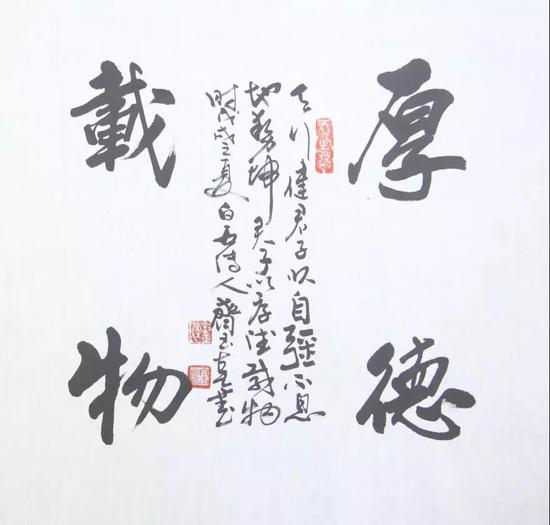 厚德
載物
天行健君子以自强不息
地势坤君子以厚德載物
时戊戌之夏白石传人齊玉书